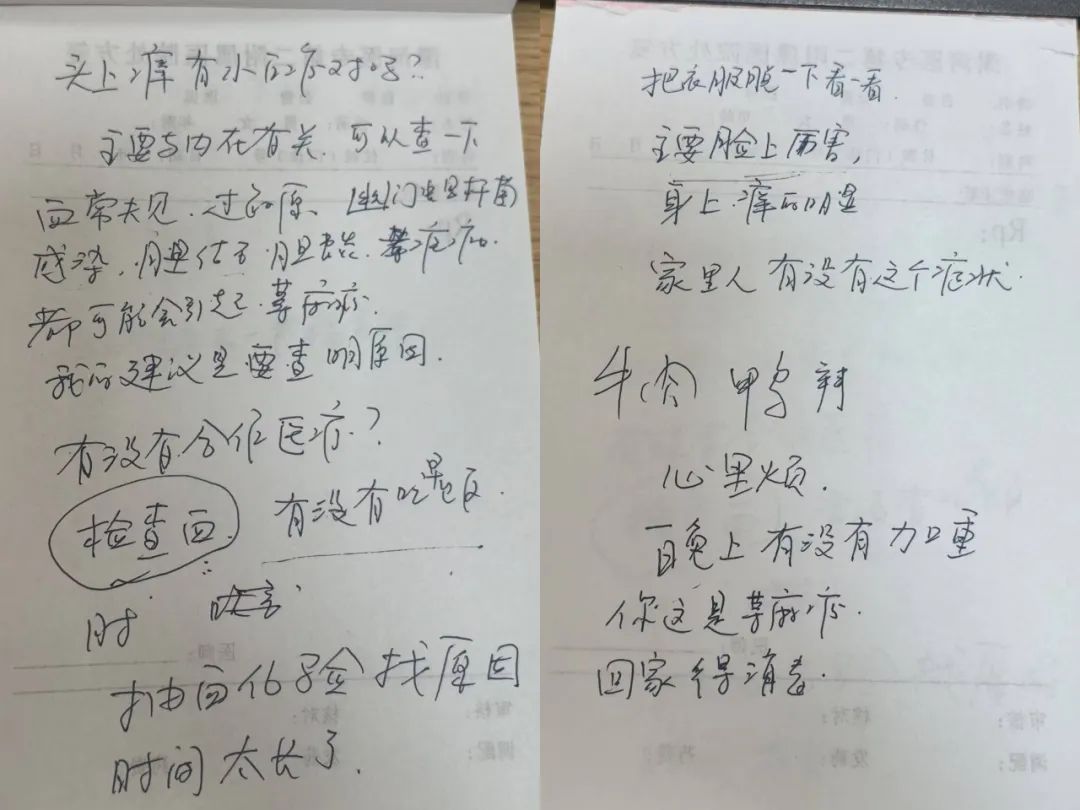 头上痒有小的疹对吗？
主要与内在有关，可以查一下
血常规，过敏原、幽门螺杆菌
感染，胆结石
都可能会引起荨麻疹.
我的建议是要查明原因.
有没有合作医疗？
检查血.
有没有吃早饭.
时
抽血化验找原因
时间太长了.
把衣服脱一下看一看.
主要脸上厉害,
身上痒的明显
家里人有没有这个症状.
牛(肉) 鸭 辣
心里烦.
晚上有没有加重
你这是荨麻疹.
回家得消毒.
Rp:
医师:
审核:
核对:
调配:
发药: